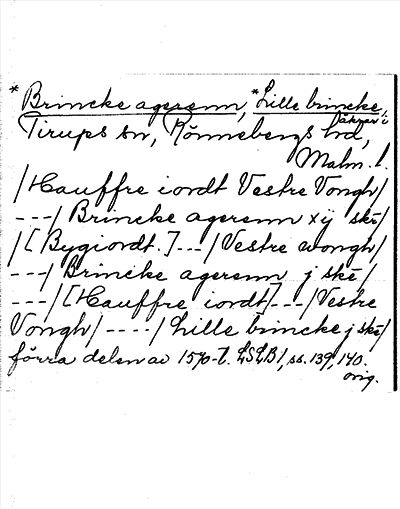 * Brincke agerenn, * Lille brincke,
åkrar i
Tirups sn, Rönnebergs hd,
Malm. l.
/Hauffre iordt Vestre Vongh/
---/ Brincke agerenn xij skē/
/[Bygiordt.]---/Vestre wongh/
---/ Brincke agerenn j skē/
---/[Hauffre iordt]---/Vestre
Vongh/----/Lille brincke j skē/
förra delen av 1570-t. LSLB 1, ss. 139, 140.
orig.